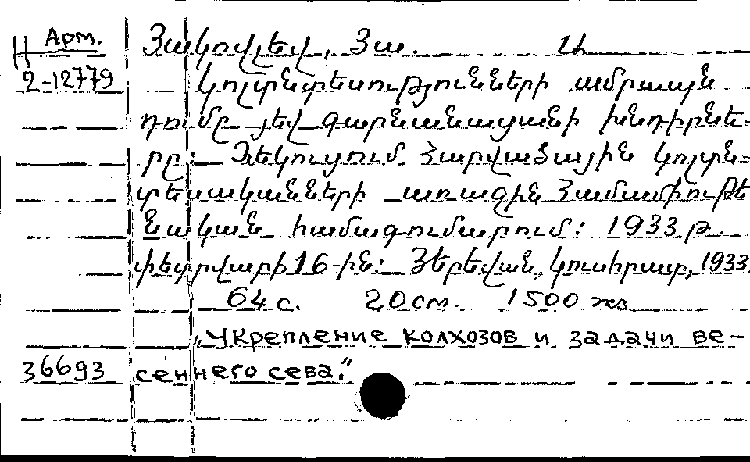 Арм. Յակովլեվ, Յա. Ա.
2-12779 Կոլտնտեսությունների ամրապն
դումը յեվ գարնանացանի խնդիրնե-
րը: Զեկուցում հարվածային կոլտն-
տեսականների առաջին համամիութե
նական համագումարում: 1933 թ.
փետրվարի 16-ին: Յերեվան, Կուսհրատ, 1933
64 с. 20 см. 1500 экз
„Укрепление колхозов и задачи ве-
36693 сеннего сева."